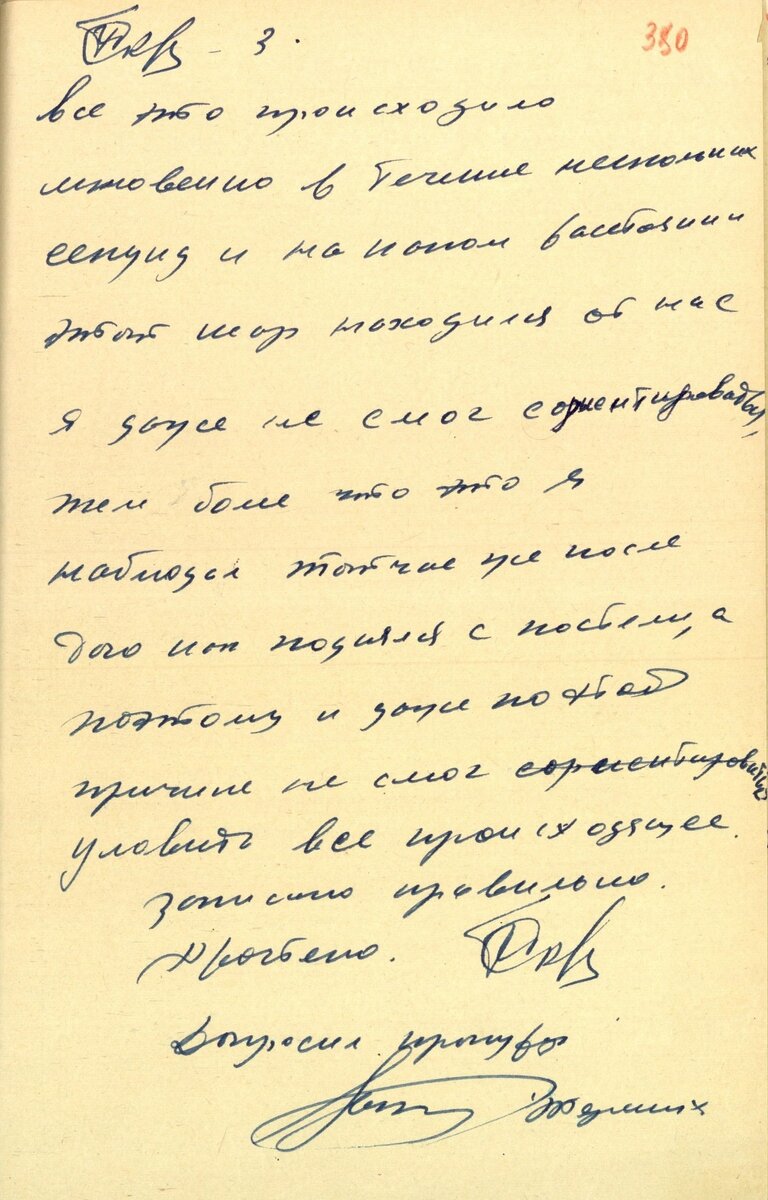 - 3.
380
все это происходило
мгновенно в течение нескольких
секунд и на каком расстоянии
этот шар находился от нас
я даже не смог сориентироваться,
тем боле что это я
наблюдал тотчас же после
того как поднялся с постели, а
поэтому и даже по этой
причине не смог сориентироваться
уловить все происходящее.
Записано правильно.
Прочтено.
Допросил прокурор